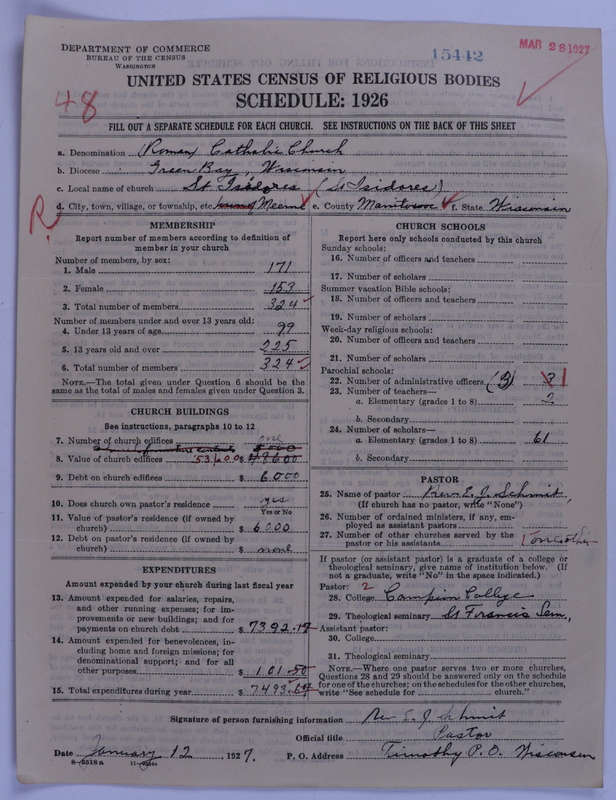 DEPARTMENT OF COMMERCE
BUREAU OF THE CENSUS
WASHINGTON
15442
MAR 28 1927
UNITED STATES CENSUS OF RELIGIOUS BODIES
SCHEDULE: 1926
48
FILL OUT A SEPARATE SCHEDULE FOR EACH CHURCH. SEE INSTRUCTIONS ON THE BACK OF THIS SHEET
a. Denomination (Roman) Catholic Church
b. Diocese Green Bay, Wisconsin
c. Local name of church St Isidores (St Isidores)
R
d. City, town, village, or township, etc. Meeme e. County Manitowoc f. State Wisconsin
MEMBERSHIP
Report number of members according to definition of member in your church
Number of members, by sex:
1. Male 171
2. Female 153
3. Total number of members 324
Number of members under and over 13 years old:
4. Under 13 years of age 99
5. 13 years old and over 225
6. Total number of members 324
NOTE.—The total given under Question 6 should be the same as the total of males and females given under Question 3.
CHURCH BUILDINGS
See instructions, paragraphs 10 to 12
7. Number of church edifices one
8. Value of church edifices 53600 $ 48600
9. Debt on church edifices $ 6000
10. Does church own pastor's residence yes
Yes or No
11. Value of pastor's residence (if owned by church) $ 6000
12. Debt on pastor's residence (if owned by church) $ none
EXPENDITURES
Amount expended by your church during last fiscal year
13. Amount expended for salaries, repairs, and other running expenses; for improvements or new buildings; and for payments on church debt $ 7392.17
14. Amount expended for benevolences, including home and foreign missions; for denominational support; and for all other purposes $ 101.50
15. Total expenditures during year $ 7493.67
CHURCH SCHOOLS
Report here only schools conducted by this church
Sunday schools:
16. Number of officers and teachers
17. Number of scholars
Summer vacation Bible schools:
18. Number of officers and teachers
19. Number of scholars
Week-day religious schools:
20. Number of officers and teachers
21. Number of scholars
Parochial schools:
22. Number of administrative officers (3) 3 1
23. Number of teachers—
a. Elementary (grades 1 to 8) 2
b. Secondary
24. Number of scholars—
a. Elementary (grades 1 to 8) 61
b. Secondary
PASTOR
25. Name of pastor Rev. E. J. Schmit
(If church has no pastor, write "None")
26. Number of ordained ministers, if any, employed as assistant pastors
27. Number of other churches served by the pastor or his assistants 1 one other
If pastor (or assistant pastor) is a graduate of a college or theological seminary, give name of institution below. (If not a graduate, write "No" in the space indicated.)
Pastor: 2
28. College Campion College
29. Theological seminary St Francis Sem.,
Assistant pastor:
30. College
31. Theological seminary
NOTE.—Where one pastor serves two or more churches, Questions 28 and 29 should be answered only on the schedule for one of the churches; on the schedules for the other churches, write "See schedule for church."
Signature of person furnishing information Rev E. J. Schmit
Official title Pastor
Date January 12, 1927. P. O. Address Timothy P.O. Wisconsin
8-5518a